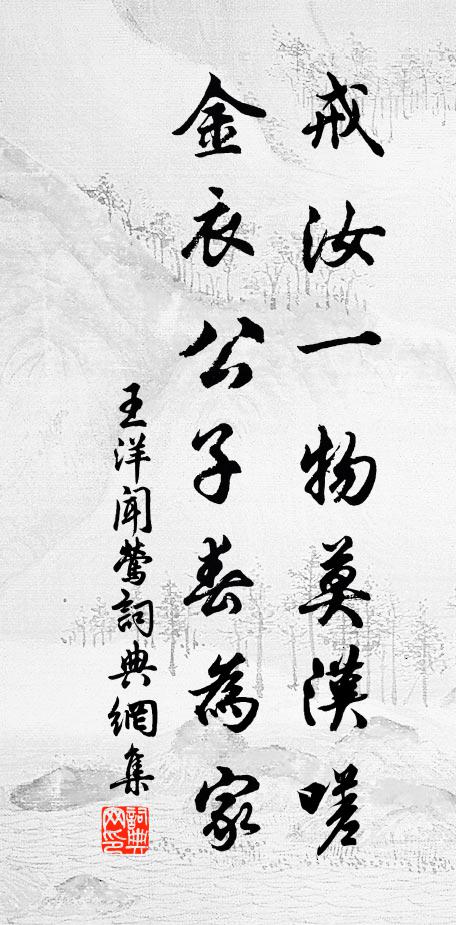 戒汝一物莫漢嗟
金衣公子春為家
王洋聞鶯詞典網集
詞典網印